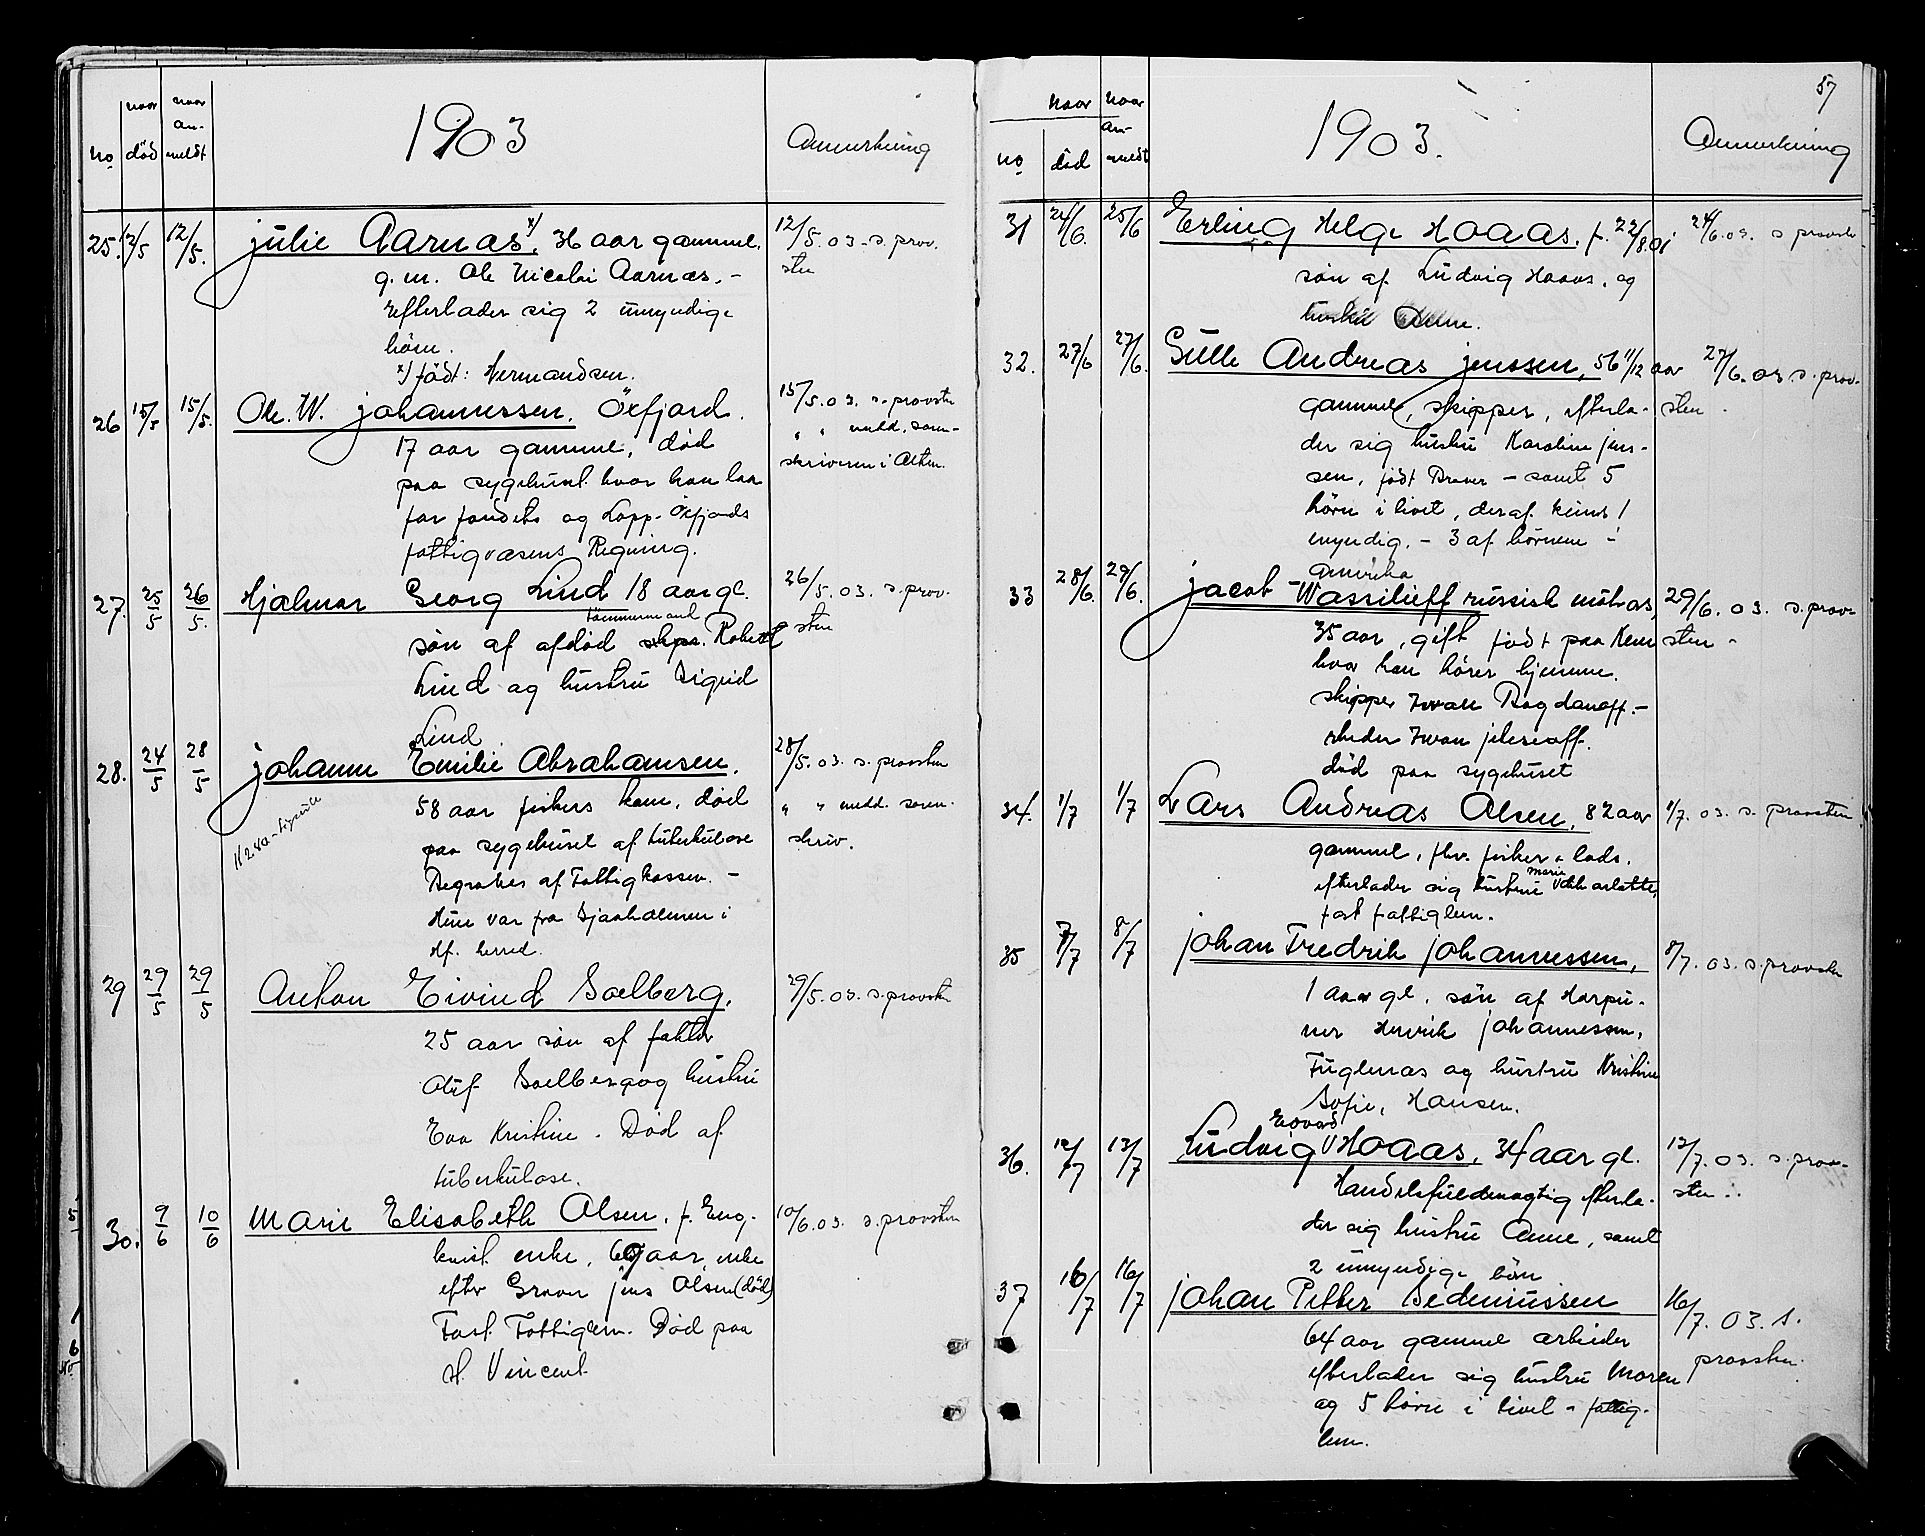 1903
no
naar død
naar an-meldt
Anmerkning
25. 12/5 12/5. Julie Aarnæs x), 36 aar gammel.
g. m. Ole Nicolai Aarnæs. -
Efterlader sig 2 umyndige
børn.
x) født: Hermandsen.
12/5. 03. s. prov-
sten
26 15/5 15/5. Ole. W. Johannessen. Öxfjord.
17 aar gammel, død
paa sygehuset hvor han laa
for fondets og Lopp. Öxfjords
fattigvæsens Regning.
15/5. 03. s. provsten
" " meld. soren-
skriveren i Alten.
27. 25/5 26/5. Hjalmar Georg Lind 18 aar gl.
tømmermand
søn af afdød skpr. Robert
Lind og hustru Sigrid
Lind
26/5. 03. s. prov-
sten
28. 24/5 28/5 Johanne Emilie Abrahamsen.
58 aar fiskers kone, død
paa sygehuset af tuberkulose
Begraves af Fattigkassen. -
Hun var fra Sjaaholmen i
Hf. herred.
28/5. 03. s. provsten
" " medd. soren-
skriv.
29 29/5 29/5 Anton Eivind Soelberg.
25 aar søn af faktor
Oluf Soelberg og hustru
Eva Kristine. Død af
tuberkulose.
29/5. 03. s. provsten
30. 9/6 10/6 Marie Elisabeth Olsen, f. Eng-
kvist enke, 69 aar, enke
efter Graver Jens Olsen (død)
Fast Fattiglem. Død paa
St. Vincent
10/6. 03. s. provsten
57
1903.
no
naar død
naar an-meldt
Anmerkning
31 24/6. 25/6 Erling Helge Haaas. f. 22/8.01
søn af Ludvig Haaas. og
hustru Anne.
24/6. 03. s provsten
32. 27/6 27/6. Gulle Andreas Jenssen, 56 11/12 aar
gammel, skipper, efterla-
der sig hustru Karoline Jens-
sen, født Braver - samt 5
børn i livet, deraf kuns 1
myndig. - 3 af børnene i
Amerika
27/6. 03 s. prov-
sten.
33 28/6. 29/6. Jacob Wassilieff russisk matros,
35 aar, gift født paa Kem
hvor han hører hjemme.
skipper Iwan Bogdanoff. -
rheder Iwan
død paa sygehuset
29/6. 03. s. prov-
sten -
34. 1/7 1/7 Lars Andreas Olsen, 82 aar
gammel, fhv. fisker & lods.
Marie
efterlader sig hustru Charlotte,
fast fattiglem.
1/7. 03. s. provsten.
35 7/7 8/7 Johan Fredrik Johannessen,
1 aar gl. søn af Harpu-
ner Henrik Johannessen,
Fuglenæs og hustru Kristine
Sofie, Hansen.
8/7. 03. s. provsten
Edvard
36. 12/7 13/7 Ludvig Haaas, 34 aar gl.
Handelsfuldmægtig efterla-
der sig hustru Anne, samt
2 umyndige børn
13/7. 03. s. prov-
sten.
37 16/7 16/7 Johan Petter Bedeniussen
64 aar gammel arbeider
efterlader sig hustru Maren
og 5 børn i livet - fattig-
lem.
16/7. 03. s.
provsten.